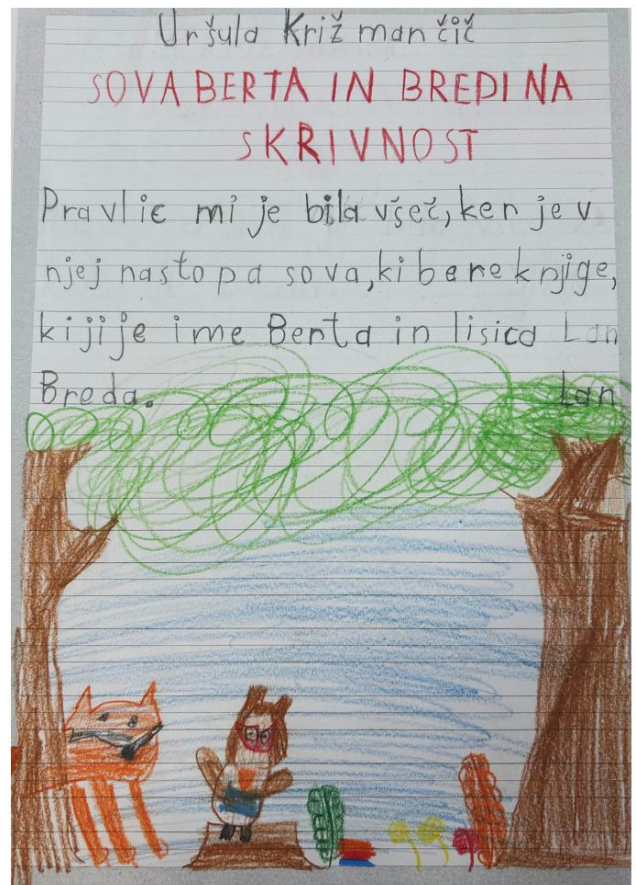 Uršula Križmančič
SOVA BERTA IN BREDINA
SKRIVNOST
Pravlic mi je bila všeč, ker je v
njej nastopa sova, ki bere knjige,
ki ji je ime Berta in lisica Lan
Breda. Lan